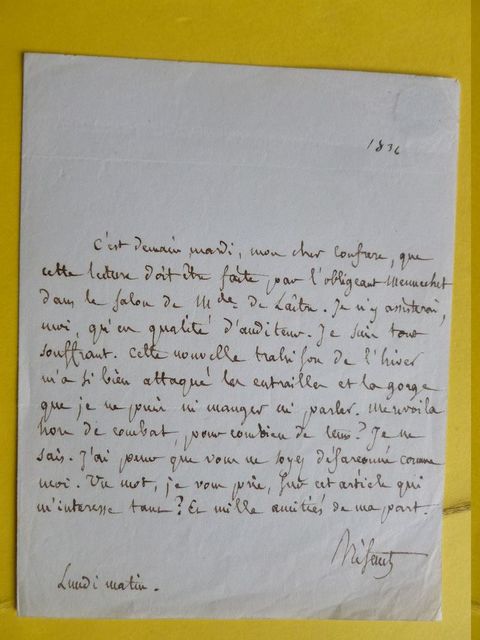 1836
C'est demain mardi, mon cher confrere, que
cette lecture doit être faite par l'obligeant Mennechet
dans le salon de Mde de Laître. Je n'y assisterai,
moi, qu'en qualité d'auditeur. Je suis tout
souffrant. Cette nouvelle trahison de l'hiver
m'a si bien attaqué les entrailles et la gorge
que je ne puis ni manger ni parler. Me voila
hors de combat, pour combien de tems? Je ne
sais. J'ai peur que vous ne soyez désarçonné comme
moi. Un mot, je vous prie, sur cet article qui
m'interesse tant? Et mille amitiés de ma part.
Lundi matin.